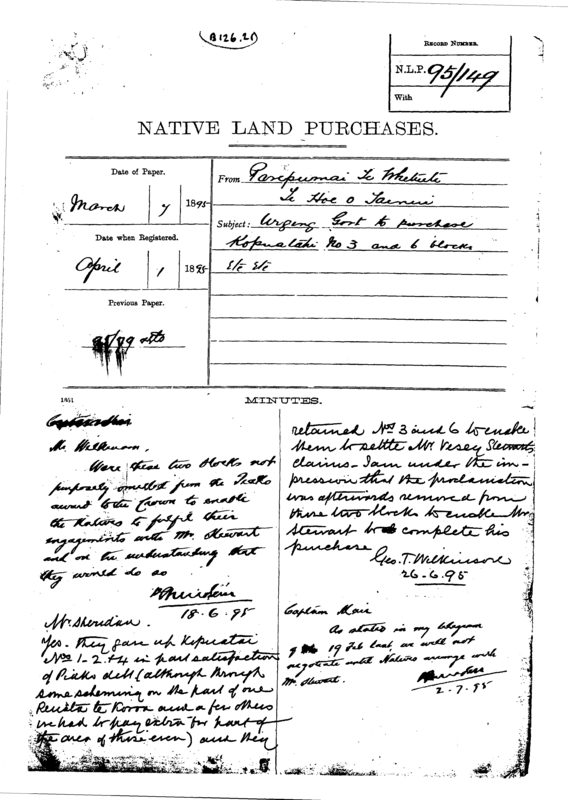 B126.21
RECORD NUMBER.
N.L.P. 95/149
With
NATIVE LAND PURCHASES.
Date of Paper.
March 7 1895
Date when Registered.
April 1 1895
Previous Paper.
95/79
From Te Whetuiti
Te Hoe o Tainui
Subject: Urging Govt to purchase
Kopuatahi No 3 and 6 blocks
etc etc
1851
MINUTES.
Mr. Wilkinson,
Were these two blocks not
purposely omitted from the Piako
award to the Crown to enable
the Natives to fulfil their
engagements with Mr. Stewart
and on the understanding that
they would do so
18-6-95
Mr Sheridan.
Yes. They gave up Kopuatai
Nos 1-2+4 in part satisfaction
of Piako debt (although through
some scheming on the part of one
Reweti te Kowa and a few others
we had to pay extra for part of
the area of those even) and they
retained Nos 3 and 6 to enable
them to settle Mr. Vesey Stewarts
claims - I am under the im-
pression that the proclamation
was afterwards removed from
those two blocks to enable Mr
Stewart to complete his
purchase
Geo. T. Wilkinson
26-6-95
Captain Mair
As stated in my telegram
of 19 Feb last, we will not
negotiate until Natives arrange with
Mr Stewart.
2-7-95